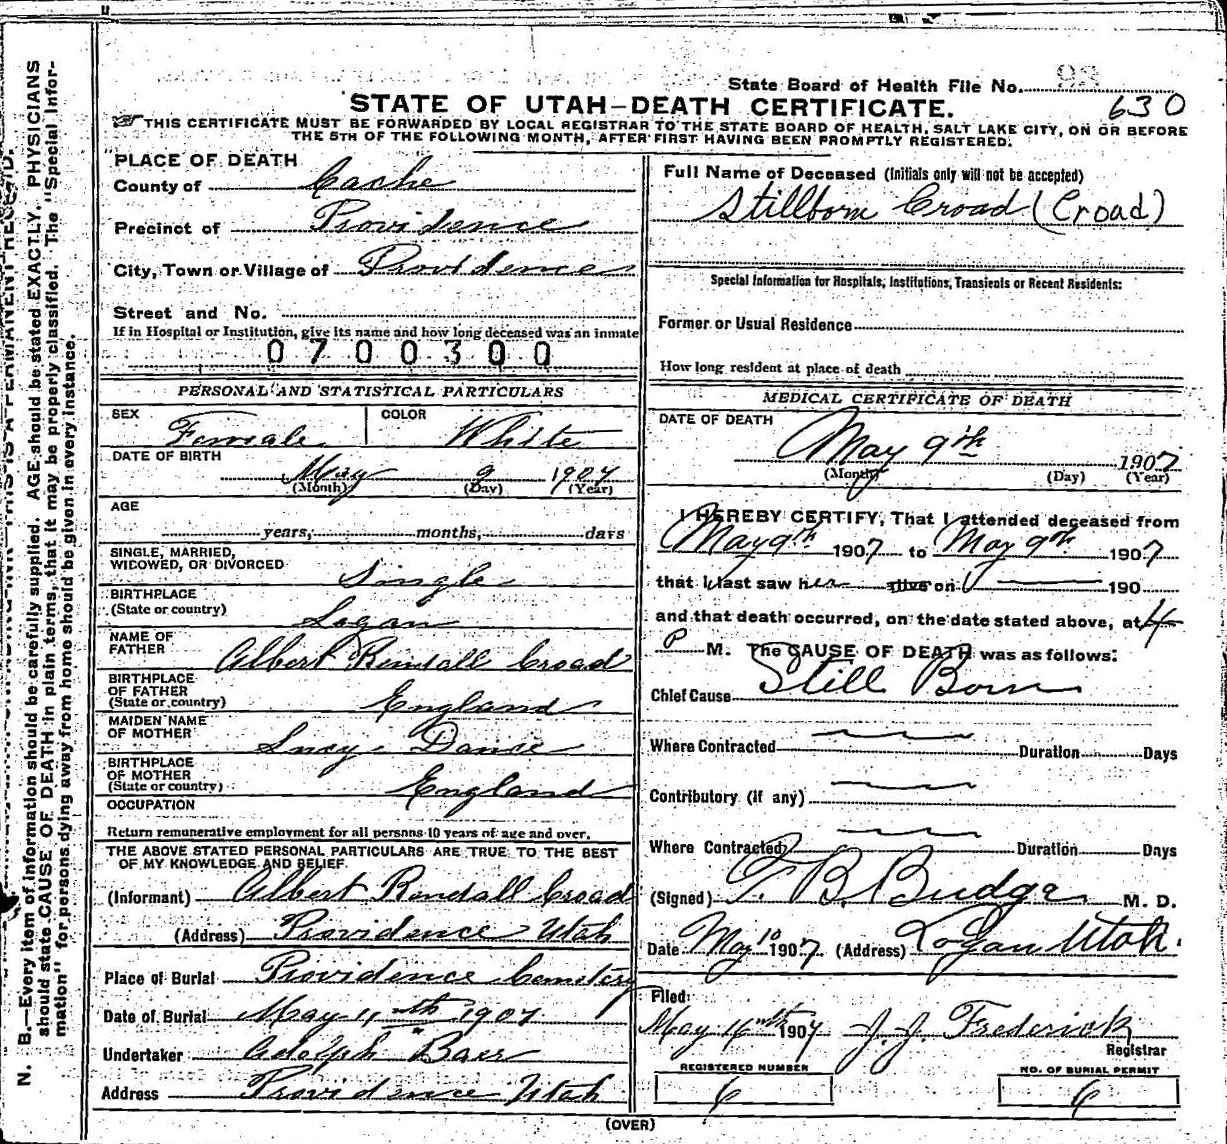 State Board of Health File No. 93
630
STATE OF UTAH—DEATH CERTIFICATE.
THIS CERTIFICATE MUST BE FORWARDED BY LOCAL REGISTRAR TO THE STATE BOARD OF HEALTH, SALT LAKE CITY, ON OR BEFORE
THE 5TH OF THE FOLLOWING MONTH, AFTER FIRST HAVING BEEN PROMPTLY REGISTERED.
PLACE OF DEATH
County of Cache
Precinct of Providence
City, Town or Village of Providence
Street and No.
If in Hospital or Institution, give its name and how long deceased was an inmate
0 7 0 0 3 0 0
PERSONAL AND STATISTICAL PARTICULARS
SEX COLOR
Female White
DATE OF BIRTH
May 9 1907
(Month) (Day) (Year)
AGE
years, months, days
SINGLE, MARRIED,
WIDOWED, OR DIVORCED Single
BIRTHPLACE
(State or country) Logan
NAME OF
FATHER Albert Rendall Croad
BIRTHPLACE
OF FATHER
(State or country) England
MAIDEN NAME
OF MOTHER Lucy Dance
BIRTHPLACE
OF MOTHER
(State or country) England
OCCUPATION
Return remunerative employment for all persons 10 years of age and over.
THE ABOVE STATED PERSONAL PARTICULARS ARE TRUE TO THE BEST
OF MY KNOWLEDGE AND BELIEF.
(Informant) Albert Rendall Croad
(Address) Providence Utah
Place of Burial Providence Cemetery
Date of Burial May 11th 1907
Undertaker Adolph Baer
Address Providence Utah
Full Name of Deceased (Initials only will not be accepted)
Stillborn Croad (Croad)
Special Information for Hospitals, Institutions, Transients or Recent Residents:
Former or Usual Residence
How long resident at place of death
MEDICAL CERTIFICATE OF DEATH
DATE OF DEATH
May 9th 1907
(Month) (Day) (Year)
I HEREBY CERTIFY, That I attended deceased from
May 9th 1907 to May 9th 1907
that I last saw her alive on 190
and that death occurred, on the date stated above, at 4
P M. The CAUSE OF DEATH was as follows:
Chief Cause Still Born
Where Contracted Duration Days
Contributory (if any)
Where Contracted Duration Days
(Signed) T. B. Budge M. D.
Date May 10 1907 (Address) Logan Utah.
Filed:
May 14th 1907 J. J. Frederick
Registrar
REGISTERED NUMBER NO. OF BURIAL PERMIT
6 6
(OVER)
N. B.—Every item of information should be carefully supplied. AGE should be stated EXACTLY. PHYSICIANS
should state CAUSE OF DEATH in plain terms, that it may be properly classified. The "Special Infor-
mation" for persons dying away from home should be given in every instance.